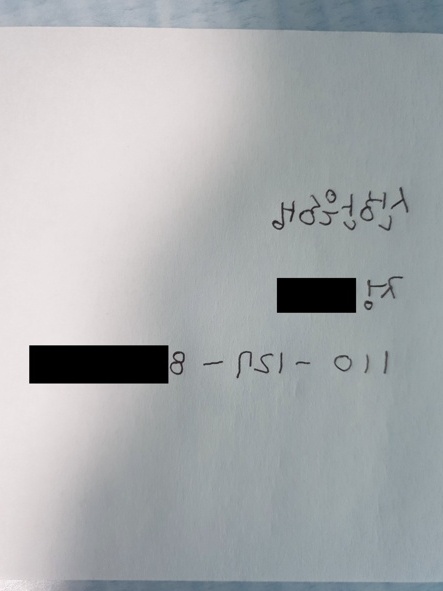 신한은행
정
110 - 127 - 8